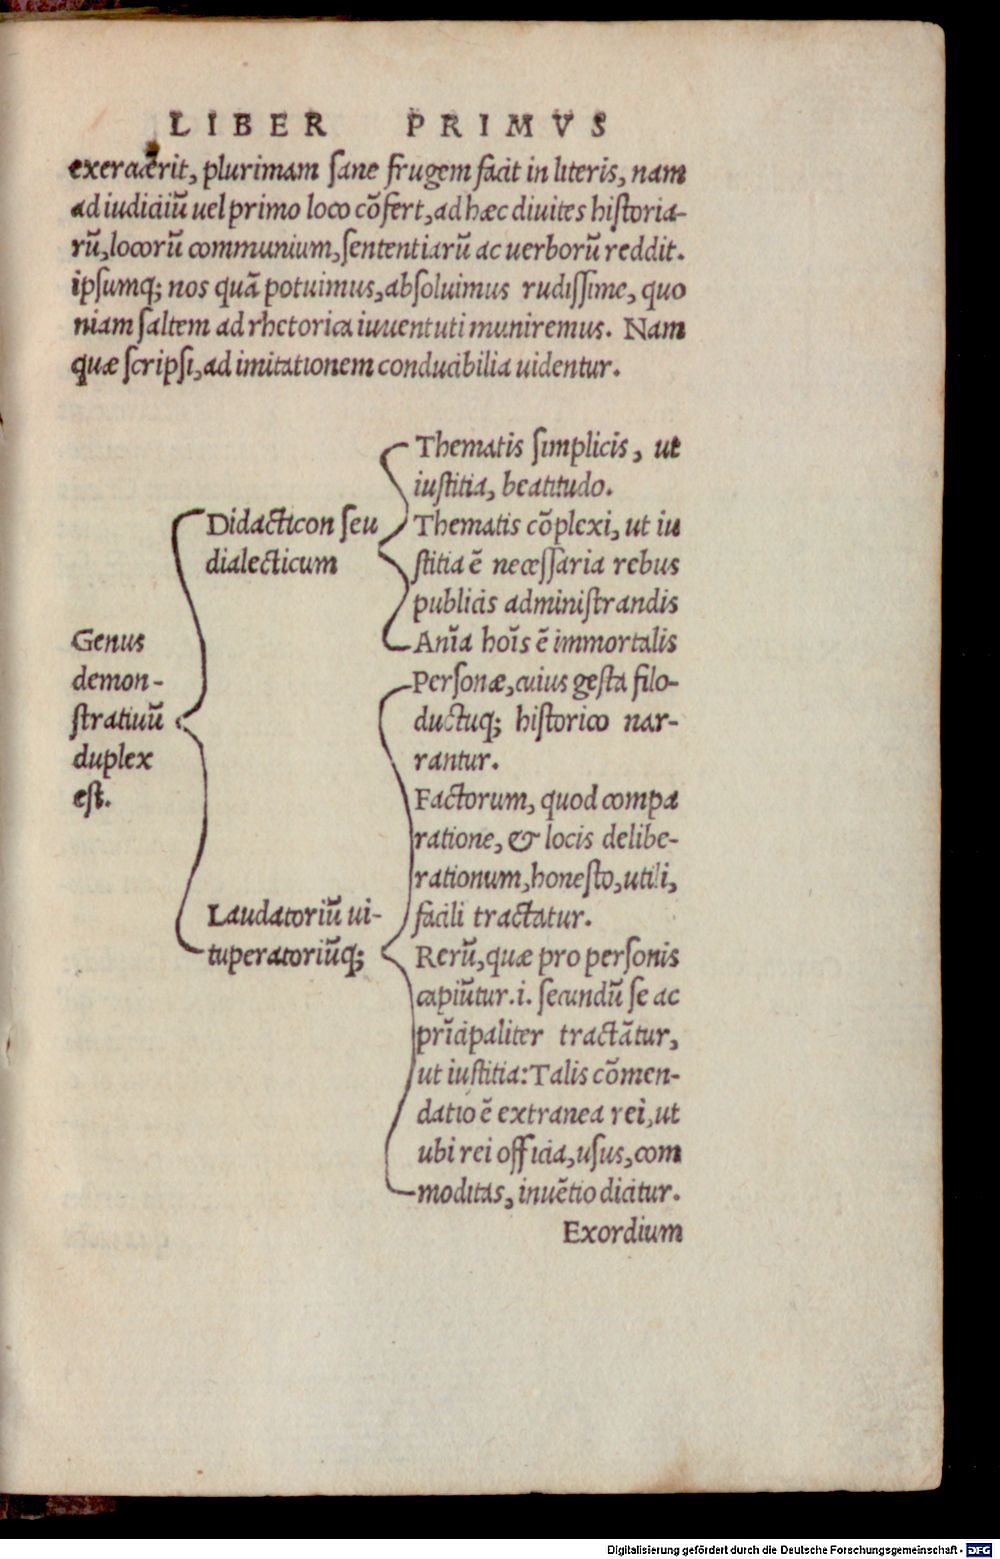 LIBER PRIMVS
exercuerit, plurimam ſane frugem facit in literis, nam
ad iudiciū uel primo loco cōfert, ad hæc diuites hiſtoria-
rū, locorū communium, ſententiarū ac uerborū reddit.
ipſumq; nos quā potuimus, abſoluimus rudiſſime, quo
niam ſaltem ad rhetorica iuuentuti muniremus. Nam
quæ ſcripſi, ad imitationem conducibilia uidentur.
Genus
demon-
ſtratiuū
duplex
eſt.
Didacticon ſeu
dialecticum
Thematis ſimplicis, ut
iuſtitia, beatitudo.
Thematis cōplexi, ut iu
ſtitia ē neceſſaria rebus
publicis adminiſtrandis
Anīa hoīs ē immortalis
Laudatoriū ui-
tuperatoriūq;
Perſonæ, cuius geſta filo-
ductuq; hiſtorico nar-
rantur.
Factorum, quod compa
ratione, & locis delibe-
rationum, honeſto, utili,
facili tractatur.
Rerū, quæ pro perſonis
capiūtur .i. ſecundū ſe ac
prīcipaliter tractātur,
ut iuſtitia: Talis cōmen-
datio ē extranea rei, ut
ubi rei officia, uſus, com
moditas, inuētio dicitur.
Exordium
Digitalisierung gefördert durch die Deutsche Forschungsgemeinschaft - DFG